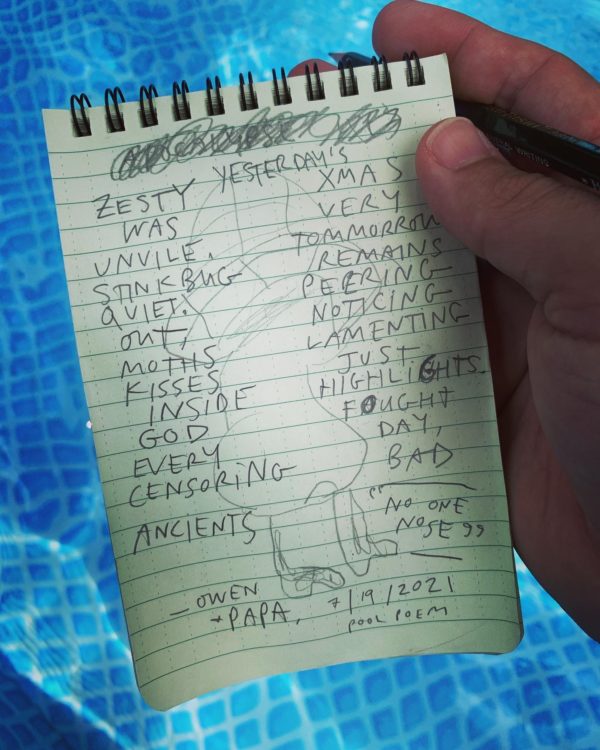 ZESTY YESTERDAY'S XMAS
WAS VERY
UNVILE. TOMMORROW
STINKBUG REMAINS
QUIET. PEERING
OUT, NOTICING
MOTHS LAMENTING
KISSES JUST
INSIDE HIGHLIGHTS.
GOD FOUGHT
EVERY DAY,
CENSORING BAD
ANCIENTS
"NO ONE
NOSE"
— OWEN
+ PAPA, 7/19/2021
POOL POEM
WRITING